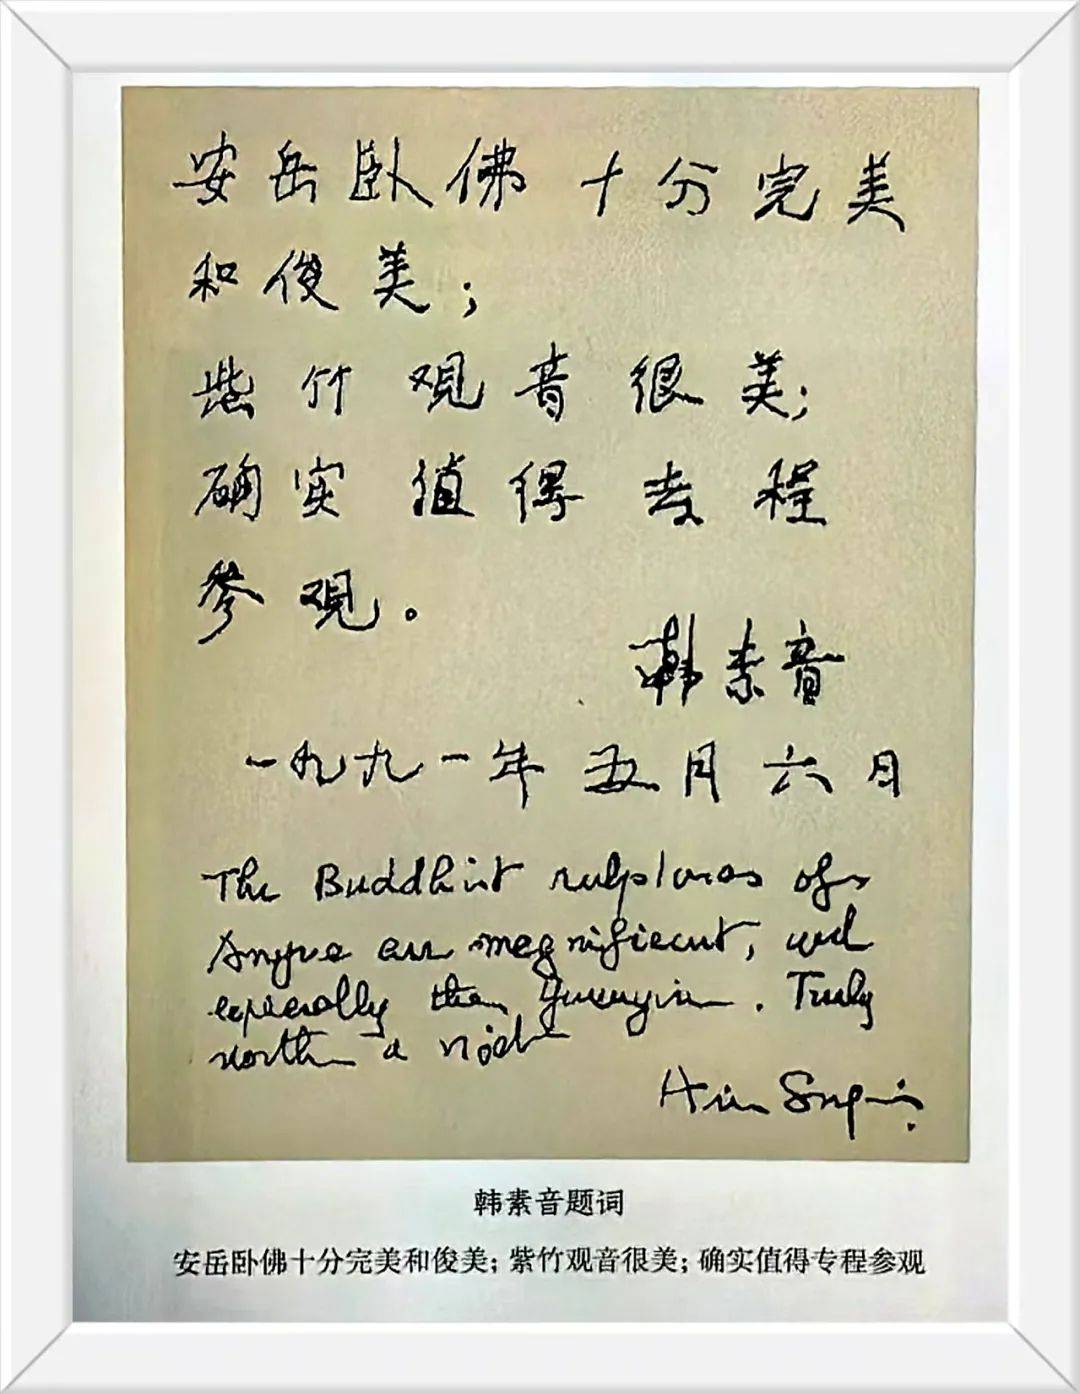 安岳卧佛 十分完美
和俊美；
紫竹观音很美；
确实值得专程
参观。
韩素音
一九九一年五月六日
The Buddhist sculptures of
Anyue are magnificent, and
especially the Guanyin. Truly
worth a visit
Han Suyin.
韩素音题词
安岳卧佛十分完美和俊美；紫竹观音很美；确实值得专程参观